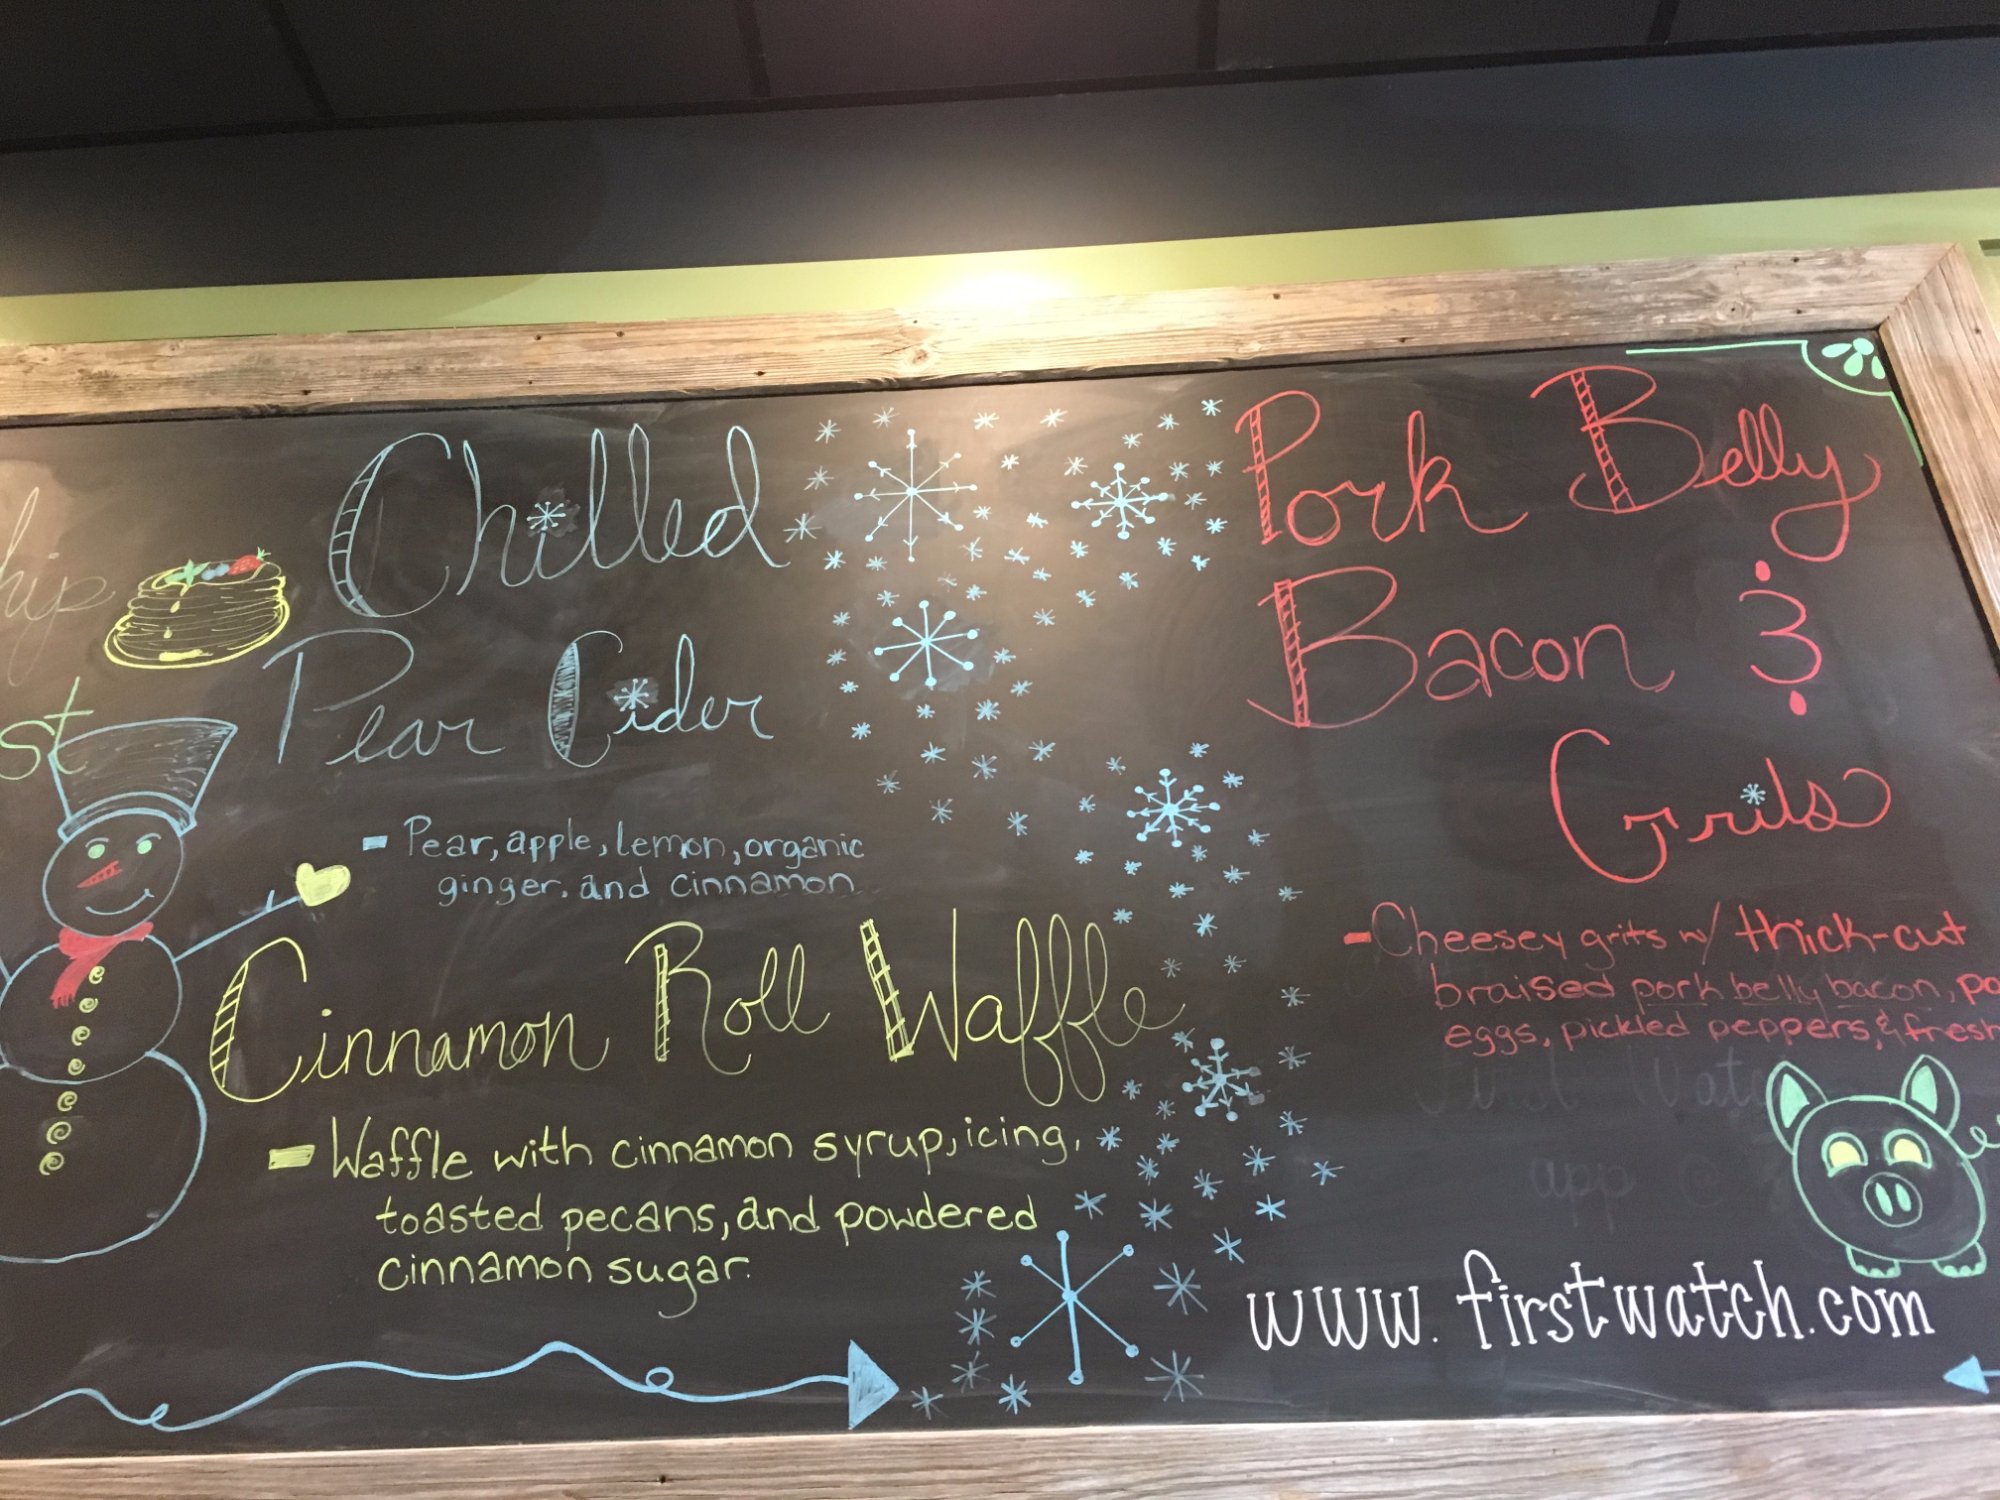 st
Chilled
Pear Cider
- Pear, apple, lemon, organic
ginger, and cinnamon
Cinnamon Roll Waffle
- Waffle with cinnamon syrup, icing,
toasted pecans, and powdered
cinnamon sugar.
Pork Belly
Bacon &
Grits
- Cheesey grits w/ thick-cut
braised pork belly bacon,
eggs, pickled peppers, & fresh
app
www.firstwatch.com